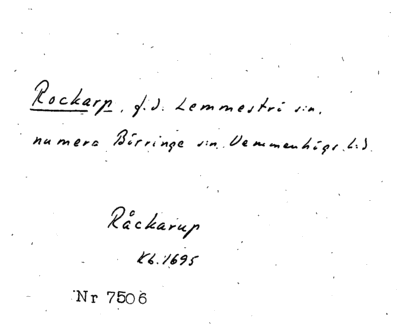 Rockarp, f.d. Lemmeströ sn.
numera Börringe sn. Vemmenhögs hd.
Råckarup
Kb. 1695
Nr 7506